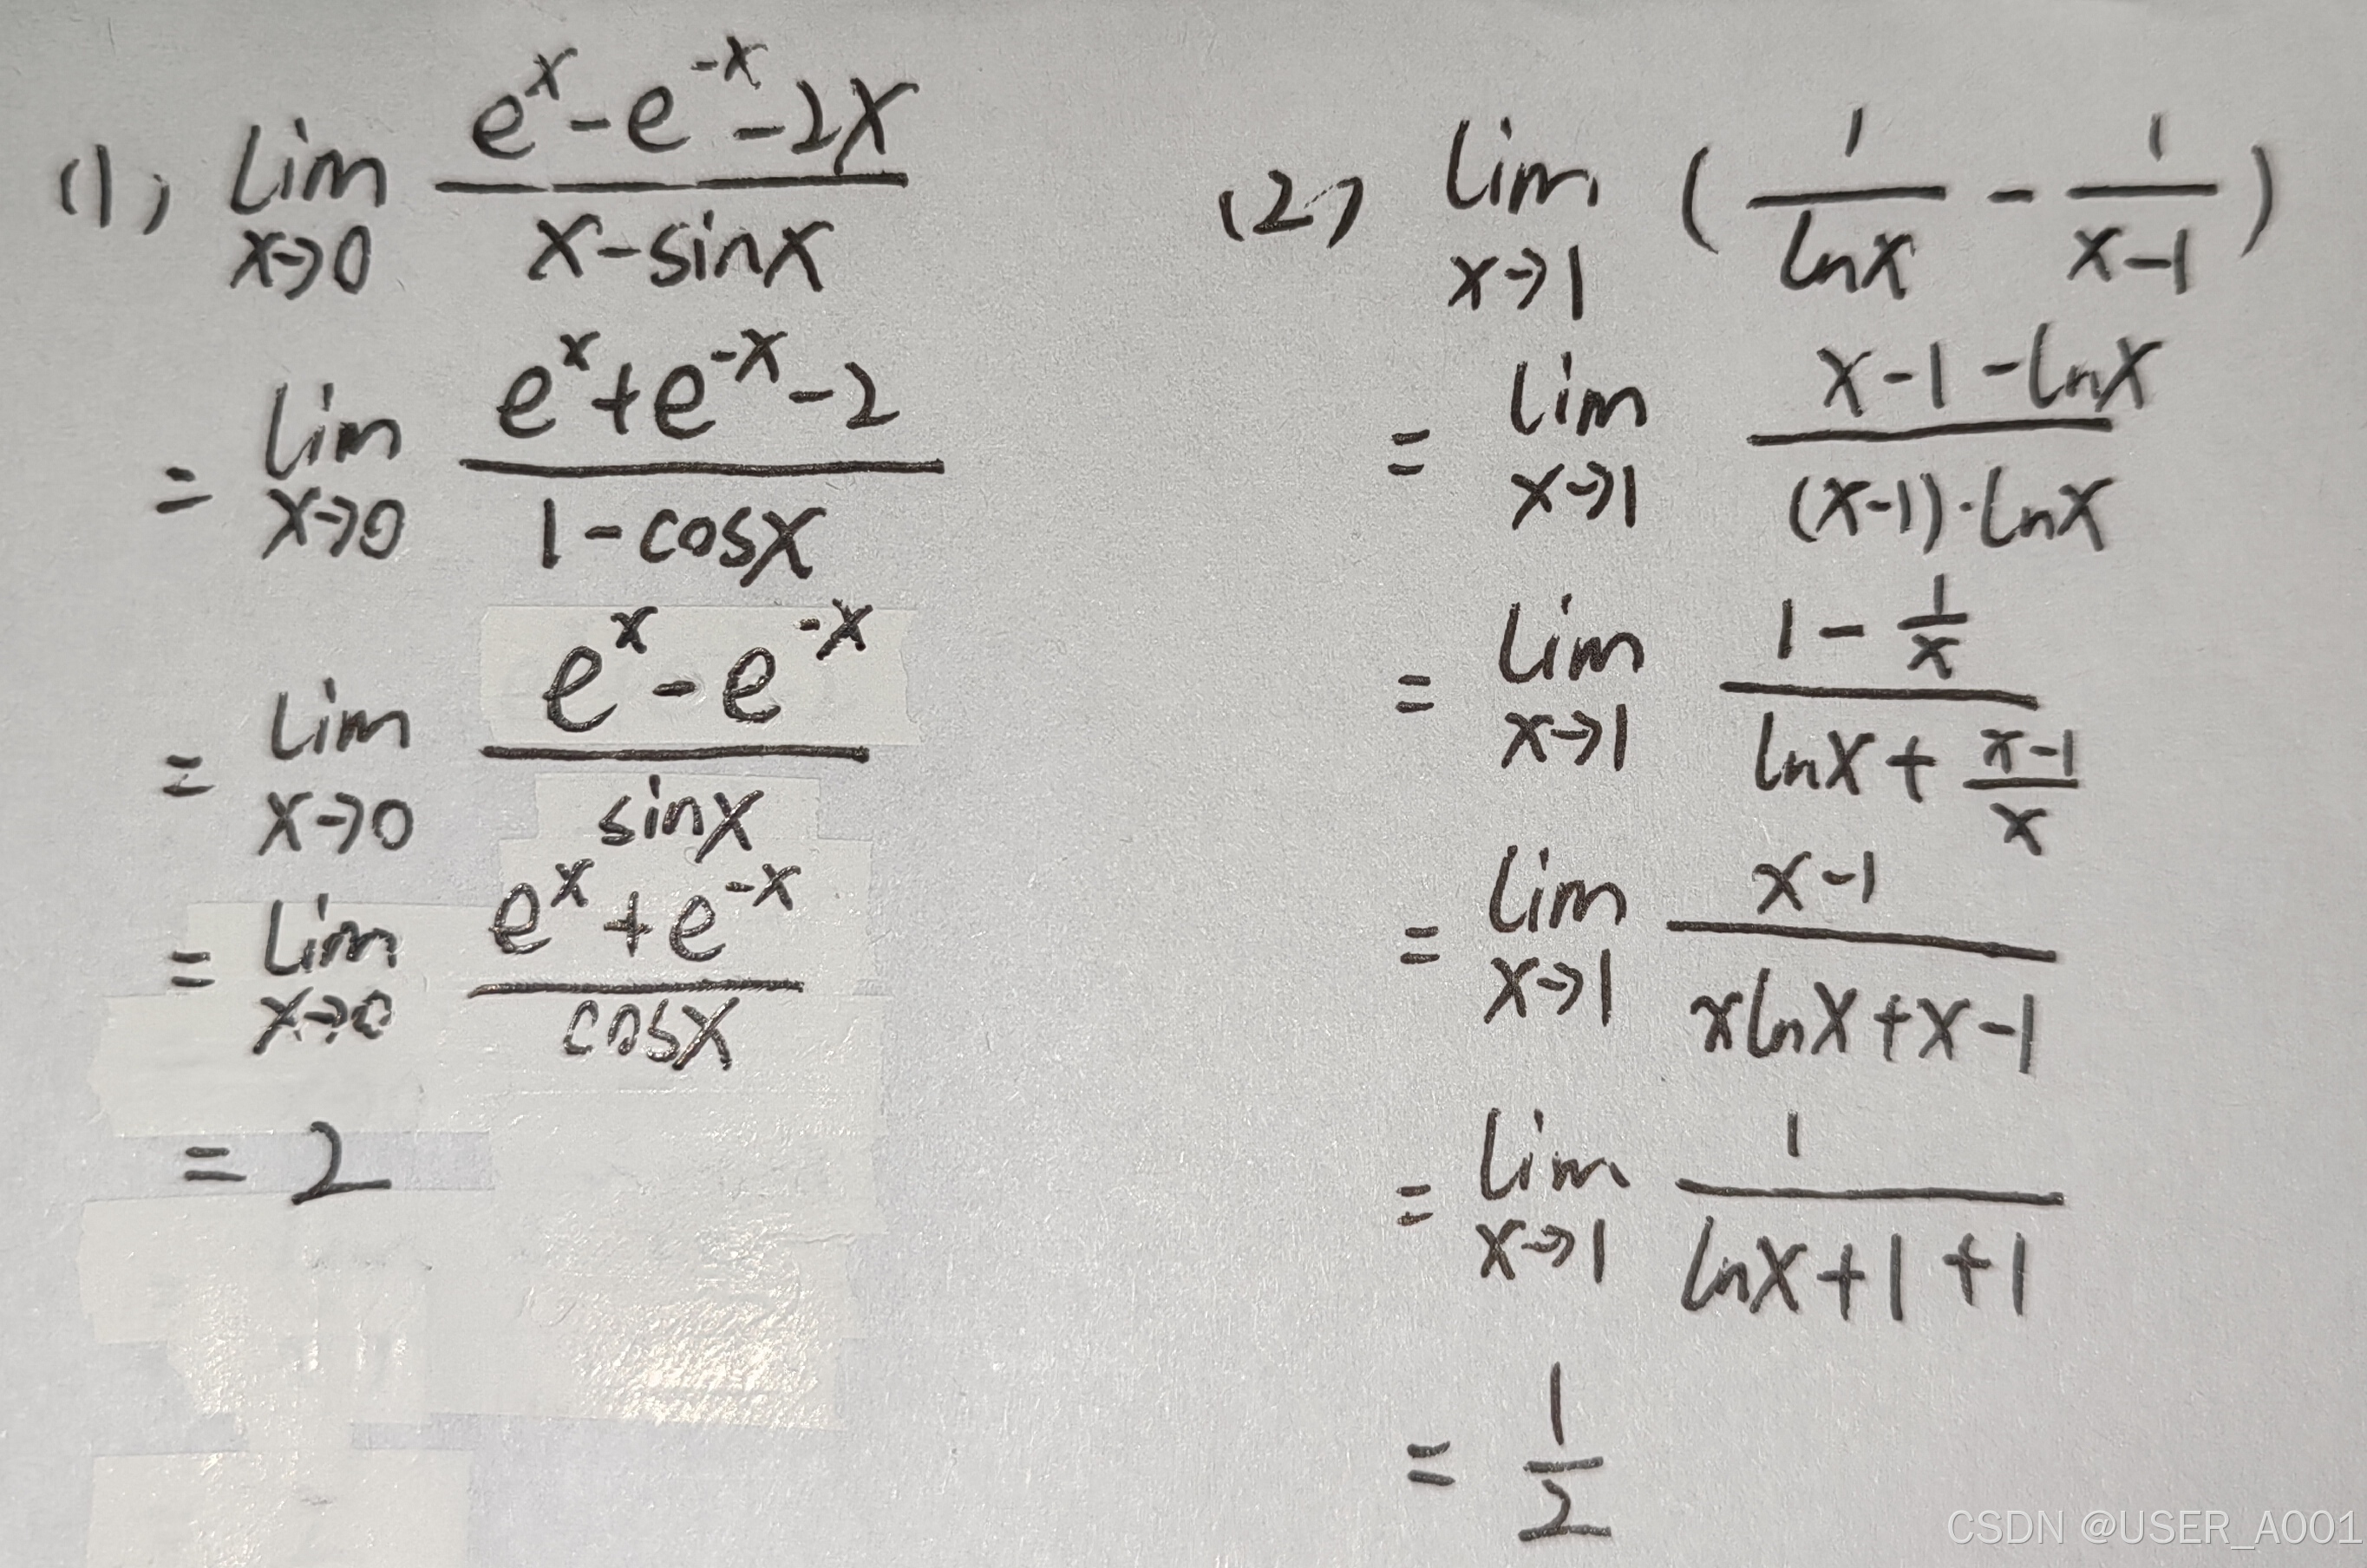 (1) lim_{x→0} \frac{e^x - e^{-x} - 2x}{x - sinx}
= lim_{x→0} \frac{e^x + e^{-x} - 2}{1 - cosx}
= lim_{x→0} \frac{e^x - e^{-x}}{sinx}
= lim_{x→0} \frac{e^x + e^{-x}}{cosx}
= 2
(2) lim_{x→1} (\frac{1}{lnx} - \frac{1}{x-1})
= lim_{x→1} \frac{x-1-lnx}{(x-1)·lnx}
= lim_{x→1} \frac{1 - \frac{1}{x}}{lnx + \frac{x-1}{x}}
= lim_{x→1} \frac{x-1}{xlnx+x-1}
= lim_{x→1} \frac{1}{lnx+1+1}
= \frac{1}{2}
CSDN @USER_A001